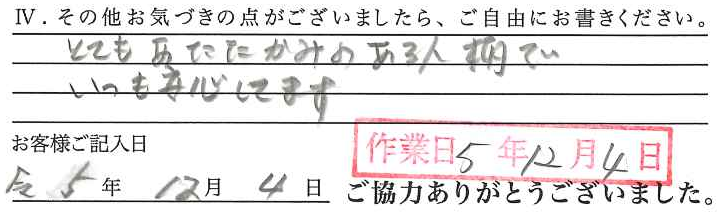 Ⅳ．その他お気づきの点がございましたら、ご自由にお書きください。
とてもあたたかみのある人柄で
いつも安心してます
お客様ご記入日
作業日5年12月4日
5年 12月 4日
ご協力ありがとうございました。